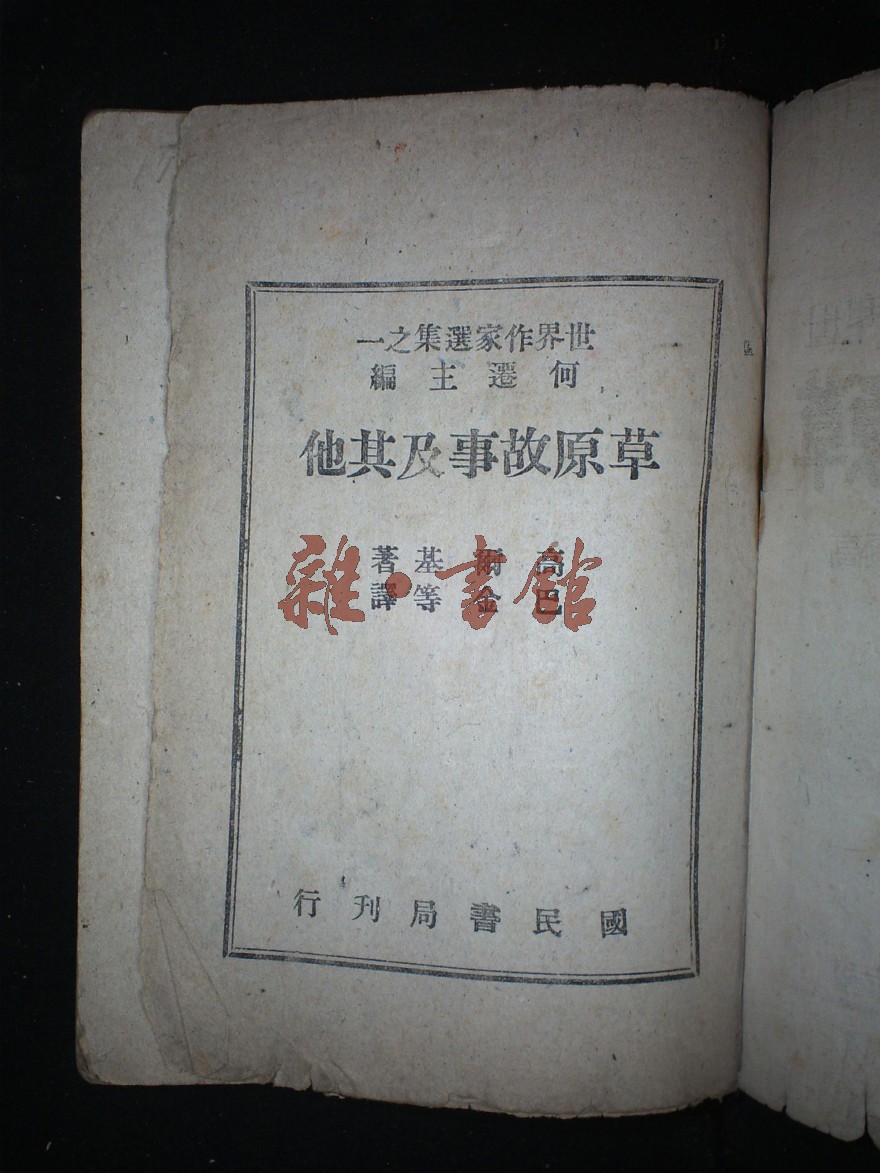 世界作家選集之一
何遷主編
草原故事及其他
高爾基著
巴金等譯
雜·書館
國民書局刊行